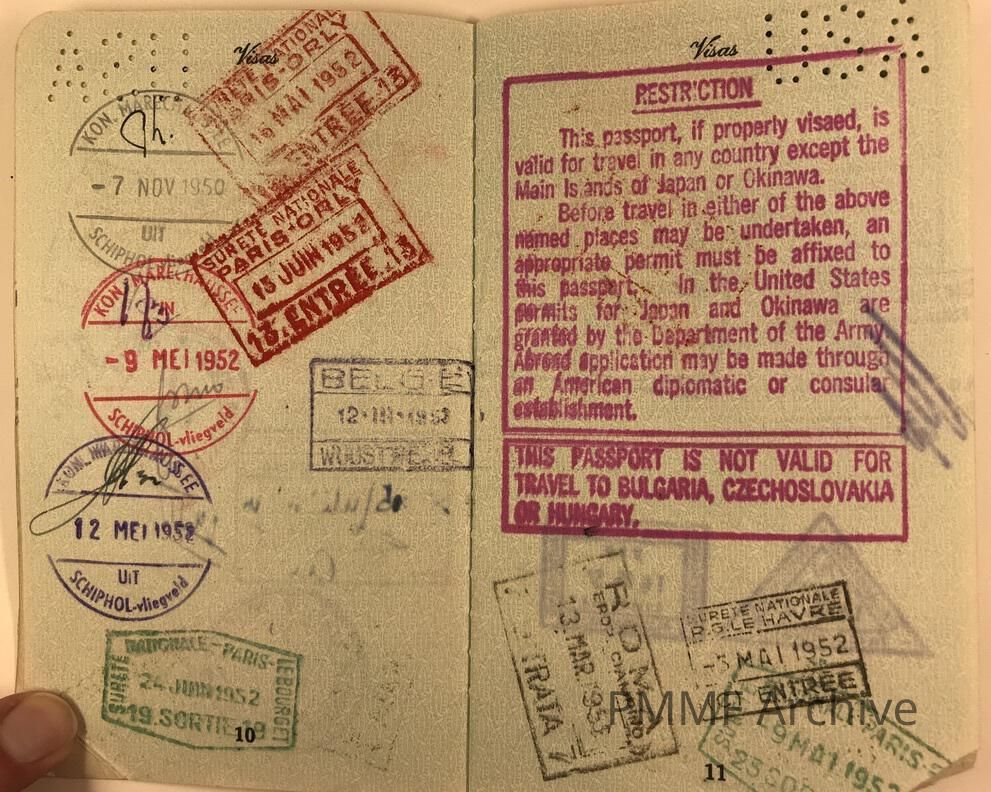 Visas
SURETE NATIONALE
PARIS-ORLY
16 MAI 1952
ENTRÉE 13
KON. MARECHAUSSEE
- 7 NOV 1950
UIT
SCHIPHOL
SURETE NATIONALE
PARIS-ORLY
15 JUIN 1952
13.ENTRÉE.13
KON. MARECHAUSSEE
IN
- 9 MEI 1952
SCHIPHOL-vliegveld
BELG E
12·III·1953
KON. MARECHAUSSEE
12 MEI 1952
UIT
SCHIPHOL-vliegveld
SURETÉ NATIONALE-PARIS-LE BOURGET
24 JUIN 1952
19.SORTIE-19
10
Visas
RESTRICTION
This passport, if properly visaed, is
valid for travel in any country except the
Main Islands of Japan or Okinawa.
Before travel in either of the above
named places may be undertaken, an
appropriate permit must be affixed to
this passport. In the United States
permits for Japan and Okinawa are
granted by the Department of the Army
Abroad application may be made through
an American diplomatic or consular
establishment.
THIS PASSPORT IS NOT VALID FOR
TRAVEL TO BULGARIA, CZECHOSLOVAKIA
OR HUNGARY.
ROMA
CIAMPINO
13 MAR 1953
TRATA 7
SURETÉ NATIONALE
R.G. LE HAVRE
-5 MAI 1952
ENTRÉE
PARIS-
9 MAI 1952
PMMF Archive
11